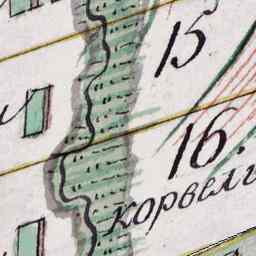 15
16.
корвель